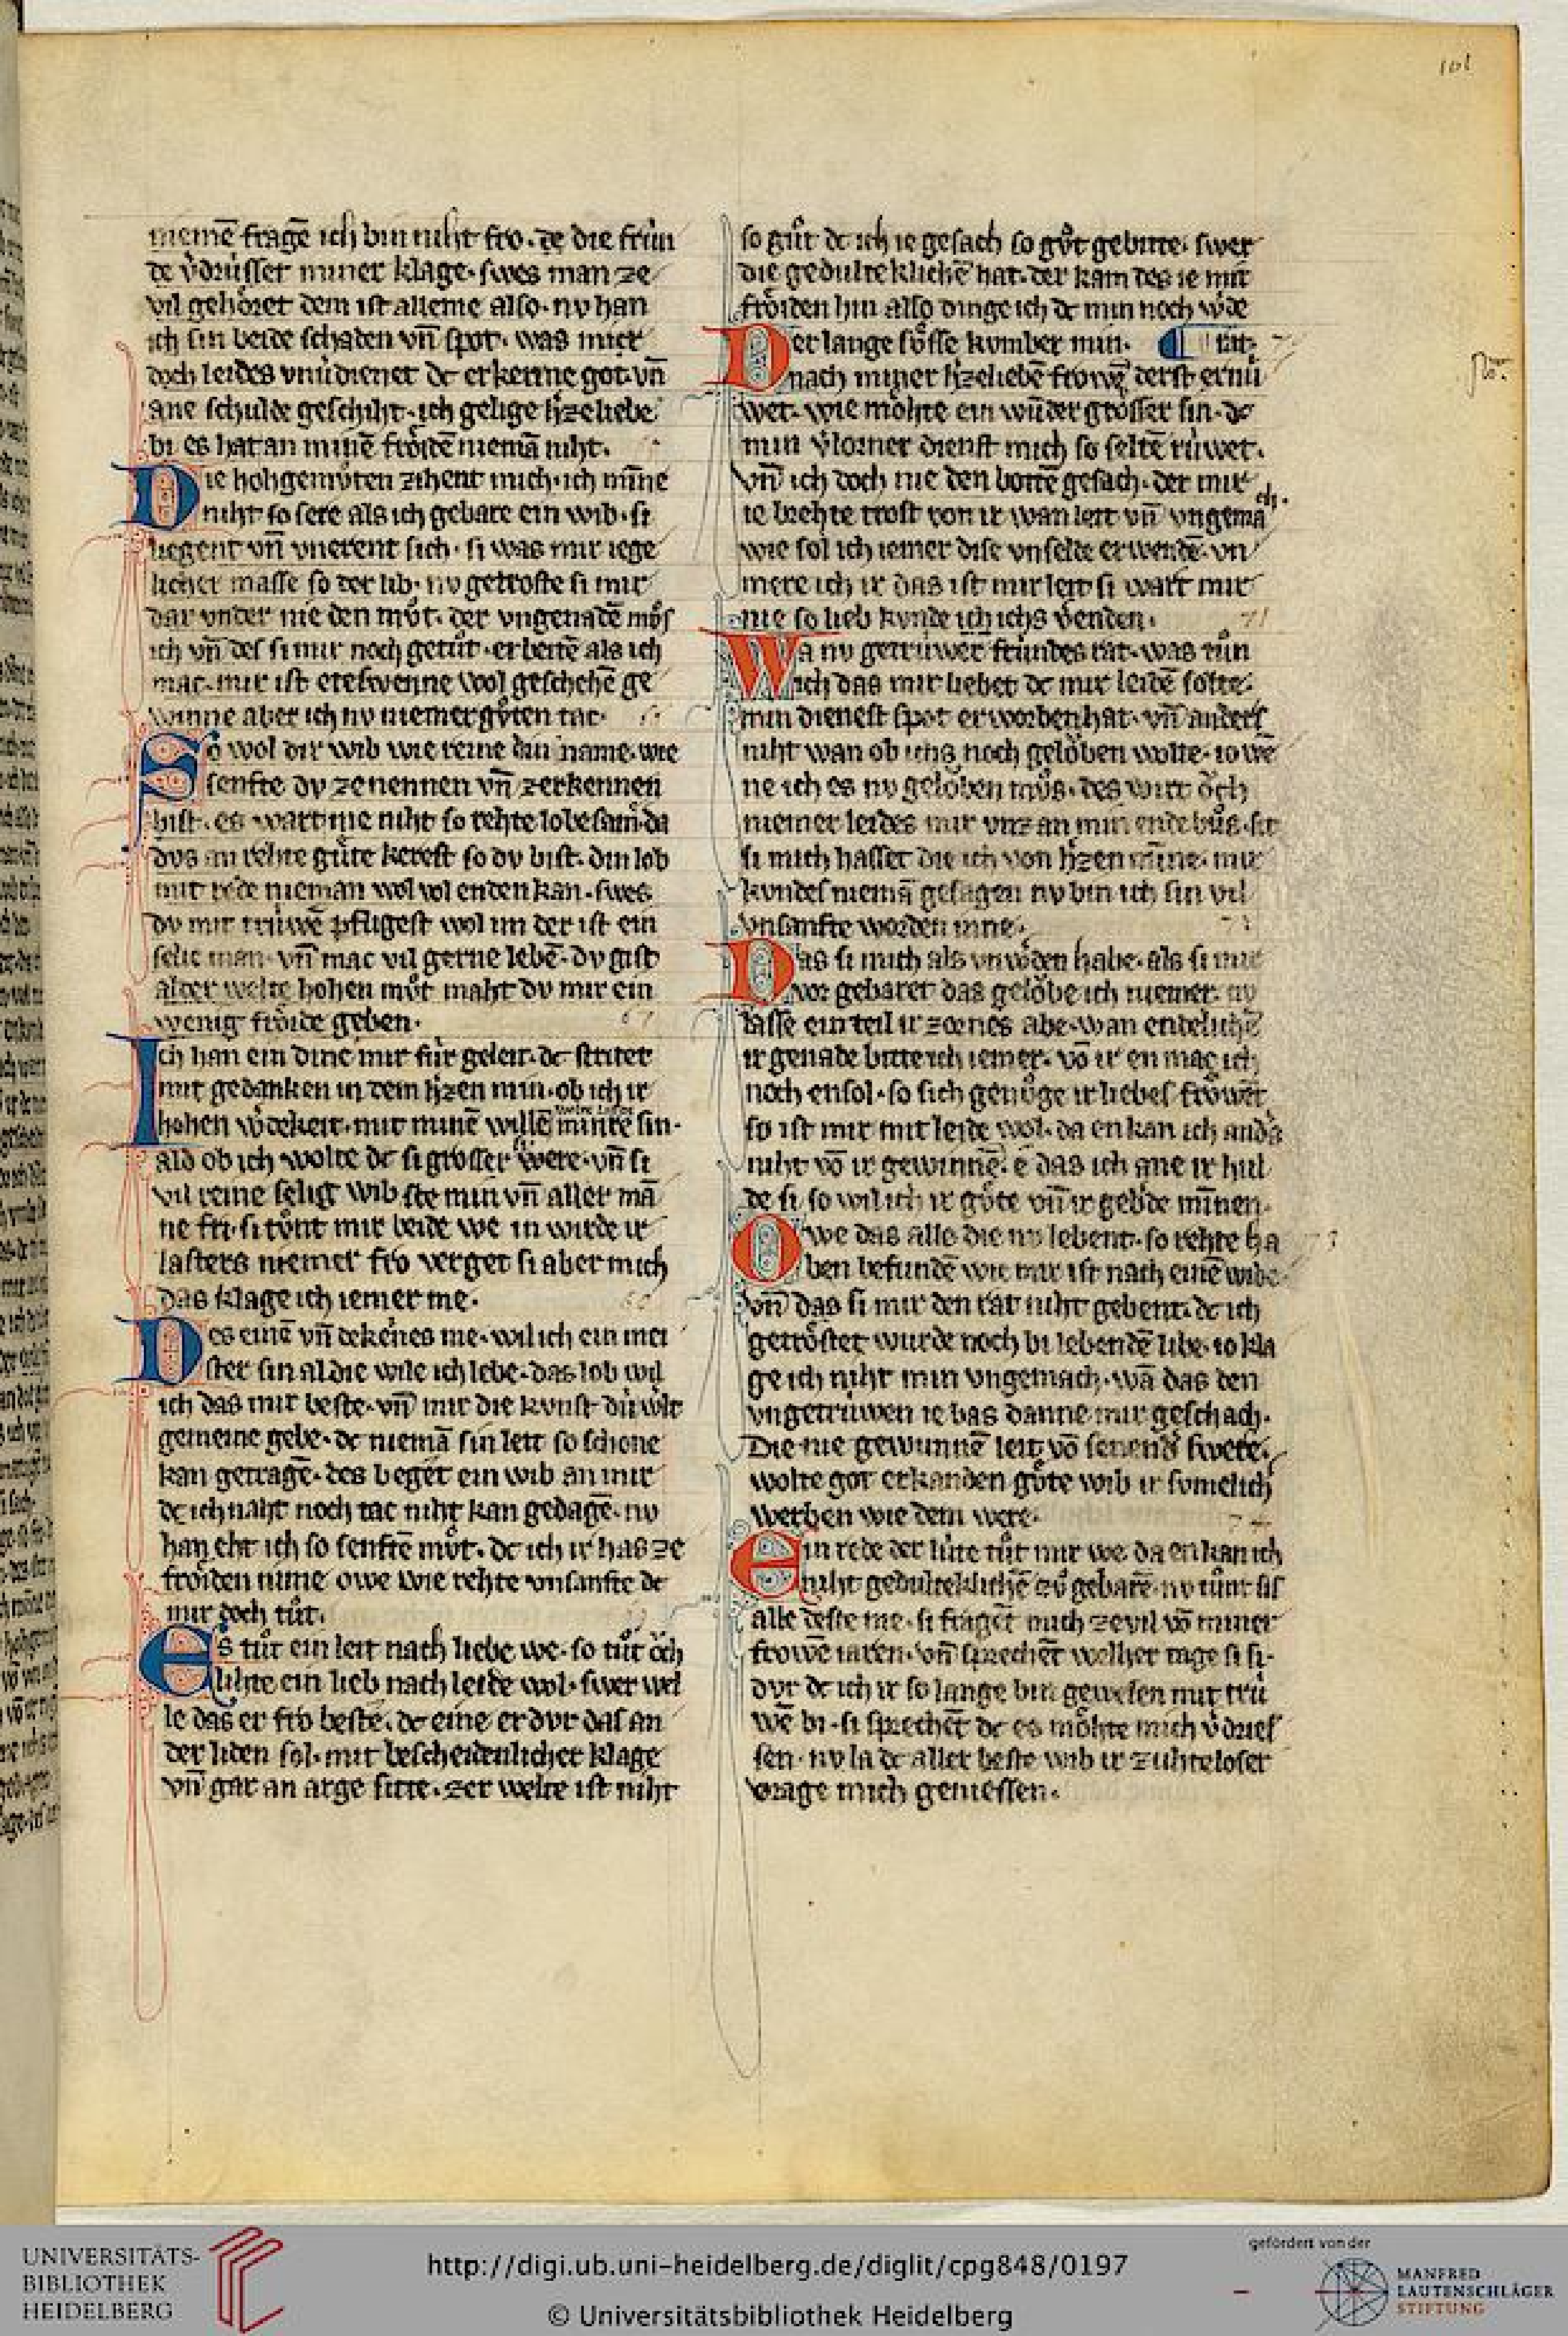 101
niemē fragē ich bin niht fro. dc die frùn
de v̓drùsset miner klage. swes man ze
vil gehöret dem ist alleme also. nv han
ich sin beide schaden vn̄ spot. was mier
doch leides vnv̓dienet dc erkenne got. vn̄
ane schulde geschiht. ich gelige h̓zeliebe
bi es hat an minē fröidē niemā niht.
Die hohgemvͦten zihent mich. ich mīne
niht so sere als ich gebare ein wib. si
liegent vn̄ vnerent sich. si was mir iege
licher masse so der lib. nv getroste si mir
dar vnder nie den mvͦt. der vngenadē mvͦs
ich vn̄ des si mir noch getuͦt. erbeitē als ich
mac. mir ist eteswenne wol geschehē ge
winne aber ich nv niemer guͦten tac.
So wol dir wib wie reine din name. wie
senfte dv zenennen vn̄ zerkennen
bist. es wart nie niht so rehte lobesam. da
dvs an rehte guͤte kerest so dv bist. din lob
mit rede nieman wol vol enden kan. swes
dv mit trùwē pfligest wol im der ist ein
selic man. vn̄ mac vil gerne lebē. dv gist
alder welte hohen mvͦt maht dv mir ein
wenig froͤide geben.
Ich han ein dinc mir fùr geleit. dc stritet
mit gedanken in dem h̓zen min. ob ich ir
hohen w̓dekeit. mit minē willē minre sin.
ald ob ich wolte dc si grosser were. vn̄ si
vil reine selig wib ste min vn̄ aller mā
ne fri. si tvͦnt mir beide we in wirde ir
lasters niemer fro verget si aber mich
das klage ich iemer me.
Des einē vn̄ dekeines me. wil ich ein mei
ster sin al die wile ich lebe. das lob wil
ich das mir beste. vn̄ mir die kvnst dù welt
gemeine gebe. dc niemā sin leit so schone
kan getragē. des beget ein wib an mir
dc ich naht noch tac niht kan gedagē. nv
han eht ich so senftē mvͦt. dc ich ir has ze
froͤiden nime owe wie rehte vnsanfte dc
mir doch tuͦt.
Es tuͦt ein leit nach liebe we. so tuͦt oͮch
lihte ein lieb nach leide wol. swer wel
le das er fro beste. dc eine er dvr das an
der liden sol. mit bescheidenlicher klage
vn̄ gar an arge sitte. zer welte ist niht
so guͦt dc ich ie gesach so guͦt gebitte. swer
die gedulteklichē hat. der kam des ie mit
froͤiden hin also dinge ich dc min noch w̓de
Der lange suͤsse kvmber min. rat.
nach miner h̓zeliebē frowē derst ernù
wet. wie moͤhte ein wūder grosser sin. dc
min v̓lorner dienst mich so seltē rùwet.
vn̄ ich doch nie den bottē gesach. der mir
ie brehte trost von ir wan leit vn̄ vngemach.
wie sol ich iemer dise vnselde erwendē. vn
mere ich ir das ist mir leit si wart mir
nie so lieb kvnde ich ichs v̓enden. 71
Wa nv getrùwer frùndes rat. was tuͦn
ich das mir liebet dc mir leidē solte.
min dienest spot erworben hat. vn̄ anders
niht wan ob ichs noch geloͮben wolte. io we
ne ich es nv geloͮben mvͦs. des wirt oͮch
niemer leides mir vnz an min ende buͦs. sit
si mich hasset die ich von h̓zen mīne. mir
kvndes niemā gesagen nv bin ich sin vil
vnsanfte worden inne.
Das si mich als vnw̓den habe. als si mir
vor gebaret das geloͮbe ich niemer. nv
lasse ein teil ir zornes abe. wan endelichē
ir genade bitte ich iemer. vō ir en mac ich
noch ensol. so sich genuͦge ir liebes frowēt
so ist mir mit leide wol. da en kan ich and̓s
niht vō ir gewinnē. e das ich ane ir hul
de si. so wil ich ir guͤte vn̄ ir geb̓de mīnen.
Owe das alle die nv lebent. so rehte ha
ben befundē wie mir ist nach einē wibe.
vn̄ das si mir den rat niht gebent. dc ich
getroͤstet wurde noch bi lebendē libe. io kla
ge ich niht min vngemach. wā das den
vngetrùwen ie bas danne mir geschach.
Die nie gewunnē leit vō senend̓ swere.
wolte got erkanden guͤte wib ir svmelich
werben wie dem were.
Ein rede der lùte tuͦt mir we. da en kan ich
niht gedulteklichē zvͦ gebarē. nv tuͦnt sis
alle deste me. si fragēt mich ze vil vō miner
frowē iaren. vn̄ sprechēt welher tage si si.
dvr dc ich ir so lange bin gewesen mit trù
wē bi. si sprechēt dc es moͤhte mich v̓dries
sen. nv la dc aller beste wib ir zuhteloser
vrage mich geniessen.
UNIVERSITÄTS-
BIBLIOTHEK
HEIDELBERG
http://digi.ub.uni-heidelberg.de/diglit/cpg848/0197
© Universitätsbibliothek Heidelberg
gefördert von der
MANFRED
LAUTENSCHLÄGER
STIFTUNG